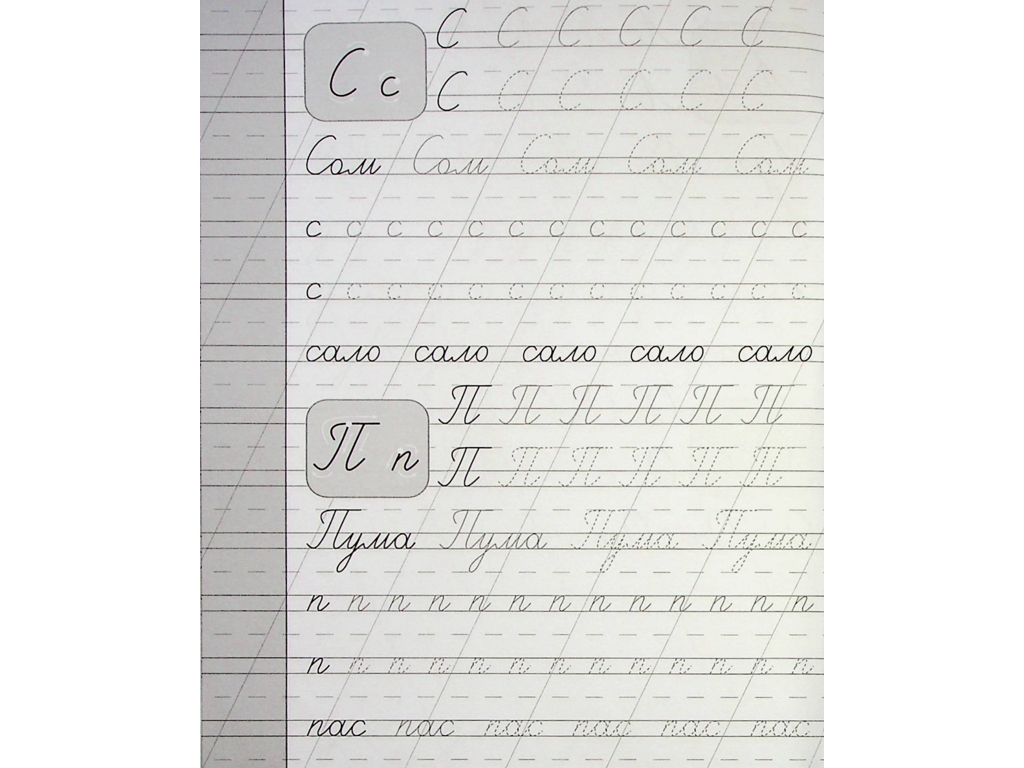 С с
С С С С С С
С С С С С С
Сом Сом Сом Сом Сом
с с с с с с с с с с с с с
с с с с с с с с с с с с с
сало сало сало сало сало
П п
П П П П П П
П П П П П П
Пума Пума Пума Пума
п п п п п п п п п п п п п
п п п п п п п п п п п п п
пас пас пас пас пас пас